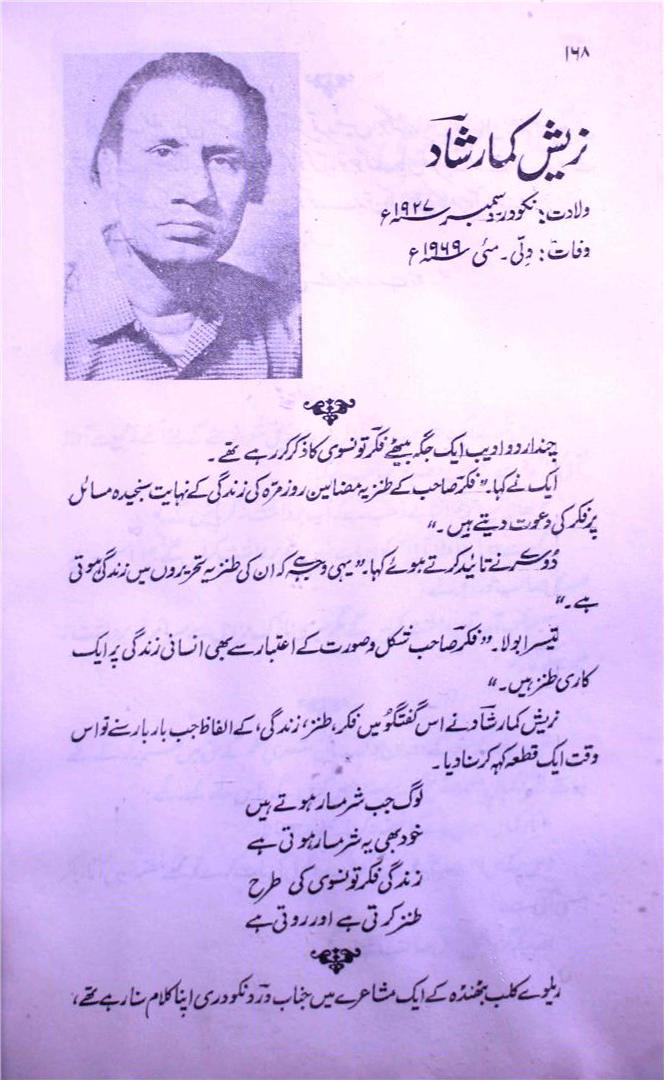 ۱۶۸
نریش کمار شاد
ولادت: نکودر دسمبر ۱۹۲۷ء
وفات: دلّی۔ مئی ۱۹۶۹ء
چند اردو ادیب ایک جگہ بیٹھے فکر تونسوی کا ذکر کر رہے تھے۔
ایک نے کہا۔ "فکر صاحب کے طنزیہ مضامین روز مرّہ کی زندگی کے نہایت سنجیدہ مسائل
پر فکر کی دعوت دیتے ہیں۔"
دُوسرے نے تائید کرتے ہوئے کہا۔ "یہی وجہ ہے کہ ان کی طنزیہ تحریروں میں زندگی ہوتی
ہے۔"
تیسرا بولا۔ "فکر صاحب شکل و صورت کے اعتبار سے بھی انسانی زندگی پر ایک
کاری طنز ہیں۔"
نریش کمار شاد نے اس گفتگو میں فکر، طنز، زندگی، کے الفاظ جب بار بار سنے تو اس
وقت ایک قطعہ کہہ کر سنا دیا۔
لوگ جب شرمسار ہوتے ہیں
خود بھی یہ شرمسار ہوتی ہے
زندگی فکر تونسوی کی طرح
طنز کرتی ہے اور روتی ہے
ریلوے کلب بھٹنڈہ کے ایک مشاعرے میں جناب درد نکودری اپنا کلام سنا رہے تھے،